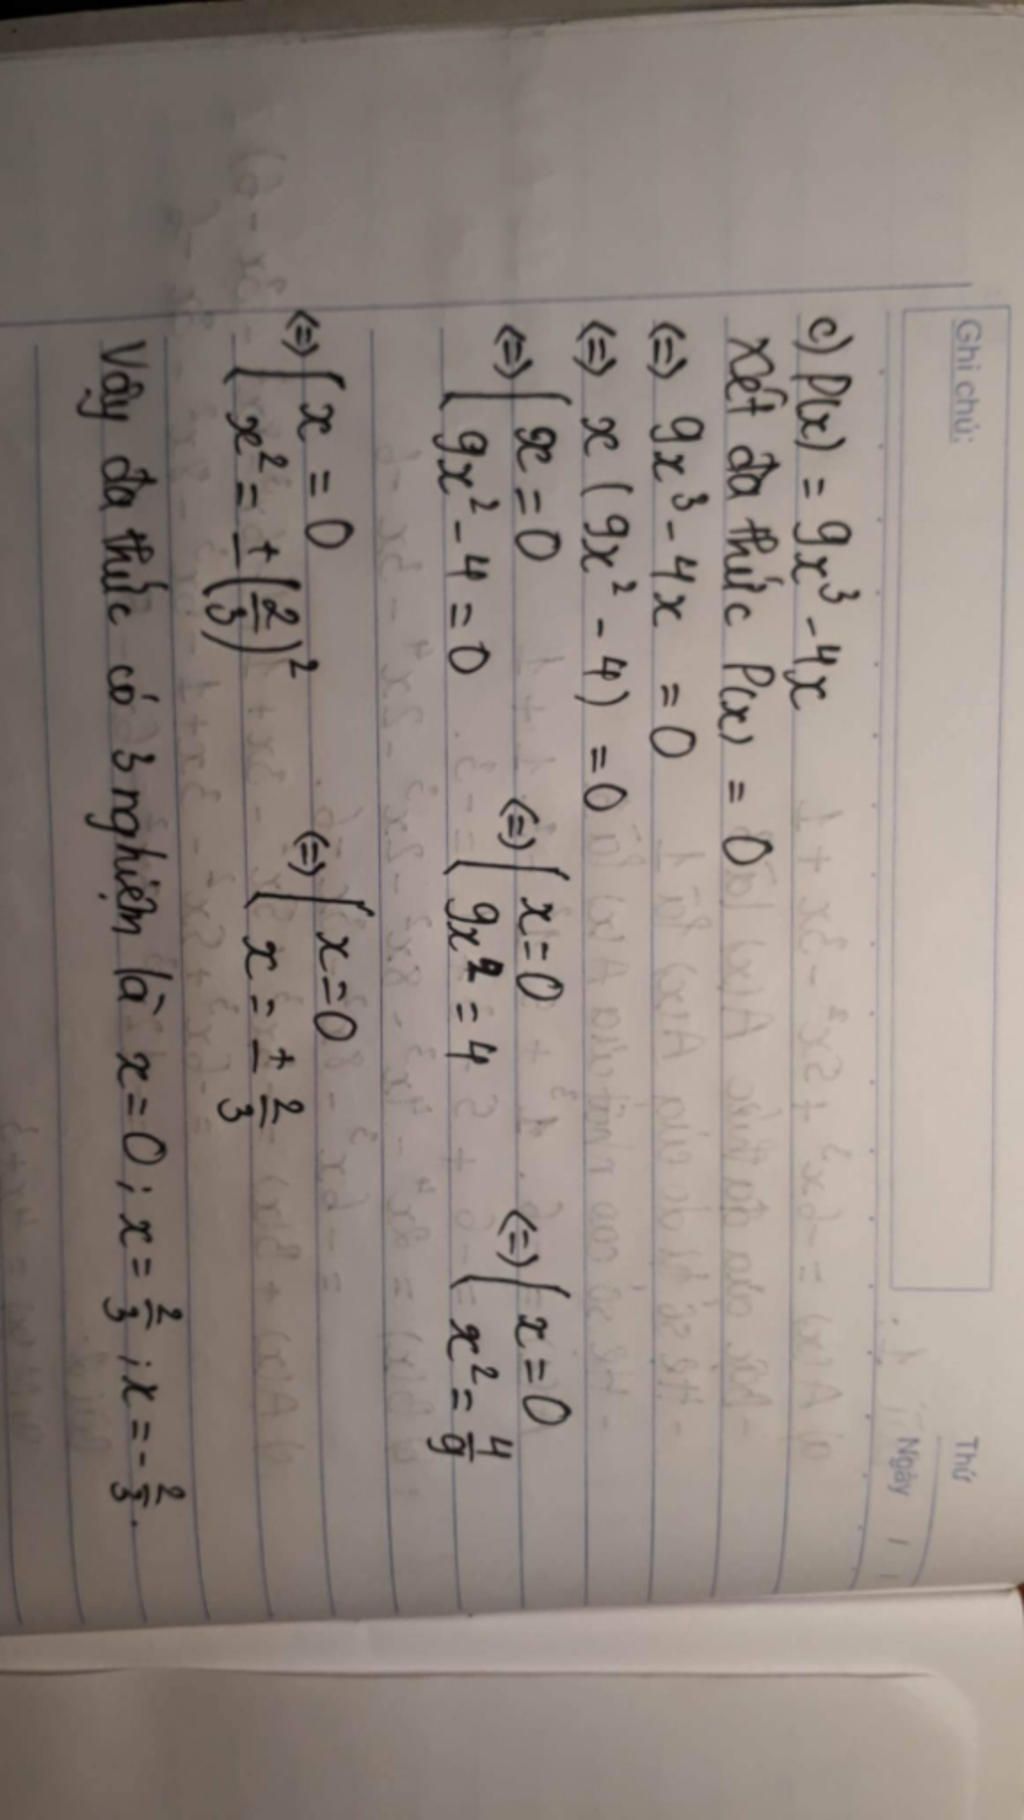 Ghi chú:
Thứ
Ngày
c) P(x) = 9x³ - 4x
Xét đa thức P(x) = 0
(=) 9x³ - 4x = 0
(=) x (9x² - 4) = 0
(=) [ x = 0 (=) [ x = 0 (=) [ x = 0
9x² - 4 = 0 9x² = 4 x² = 4/9
(=) [ x = 0 (=) [ x = 0
x² = ± (2/3)² x = ± 2/3
Vậy đa thức có 3 nghiệm là x = 0 ; x = 2/3 ; x = - 2/3.